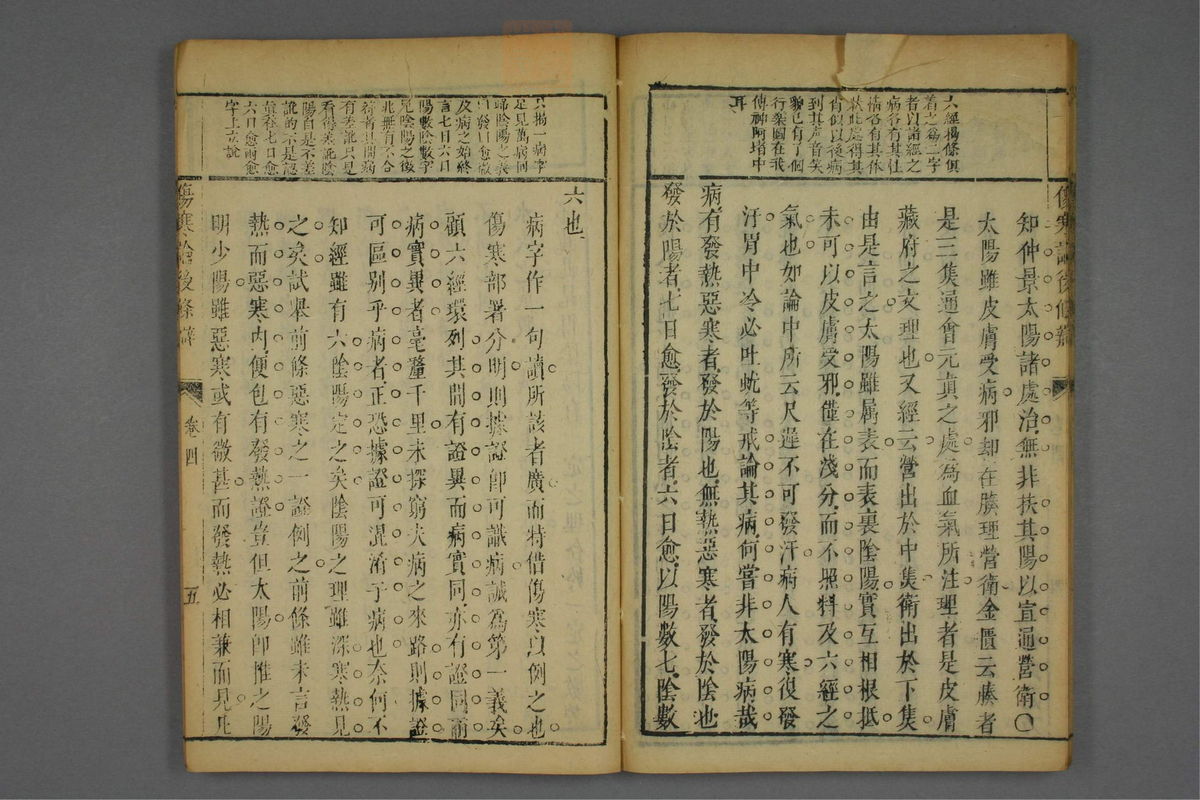 六經揭條俱
着之為二字
者以諸經之
病各有其性
情各有其体
狀此處得其
肖似以後病
到其声音矣
貌已有了個
行樂圖在我
傳神阿堵中
耳
知仲景太陽諸處治無非扶其陽以宣通營衛〇
太陽雖皮膚受病邪却在腠理營衛金匱云腠者
是三焦通會元真之處為血氣所注理者是皮膚
藏府之文理也又經云營出於中焦衛出於下焦
由是言之太陽雖属表而表裏陰陽實互相根抵
未可以皮膚受邪僅在淺分而不照料及六經之
氣也如論中所云尺遲不可發汗病人有寒復發
汗胃中冷必吐蚘等戒論其病何嘗非太陽病哉
病有發熱惡寒者發於陽也無熱惡寒者發於陰也
發於陽者七日愈發於陰者六日愈以陽數七陰數
傷寒論後條辯
只揭一病字
足見萬病何
歸陰陽之表
曰發曰愈徹
及病之始終
言七日六日
陽數陰數字
足陰陽之徴
兆無有不合
符者但開病
有乘訛只見
看得乘訛陰
陽自是不差
訛的不是認
六日愈前愈
字上立說
六也
病字作一句讀所該者廣而特借傷寒以例之也
傷寒部署分明則據證即可識病誠為第一義矣
顧六經環列其間有證異而病實同亦有證同而
病實異者毫釐千里未探窮夫病之來路則據證
可區别乎病者正恐據證可混淆于病也奈何不
知經雖有六陰陽定之矣陰陽之理雖深寒熱見
之矣試舉前條惡寒之一證例之前條雖未言發
熱而惡寒内便包有發熱證豈但太陽即推之陽
明少陽雖惡寒或有微甚而發熱必相兼而見凡
傷寒論後條辯
卷四
五